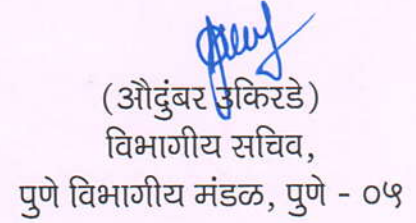 (औदुंबर उकिरडे)
विभागीय सचिव,
पुणे विभागीय मंडळ, पुणे - ०५